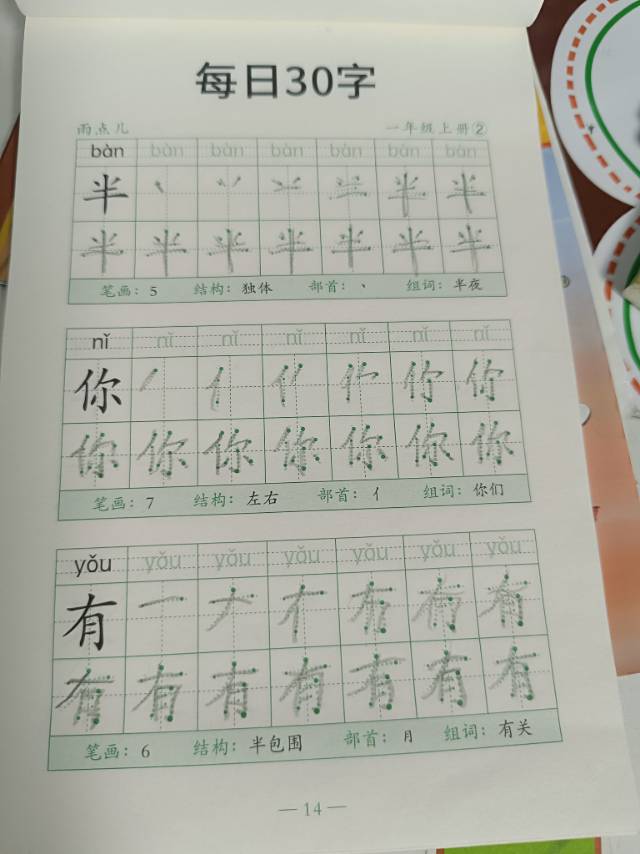 每日30字
雨点儿 一年级上册②
bàn bàn bàn bàn bàn bàn bàn
半 丶 丷 半 半
半 半 半 半 半 半 半
笔画：5 结构：独体 部首：丶 组词：半夜
nǐ nǐ nǐ nǐ nǐ nǐ nǐ
你 丿 亻 你 你
你 你 你 你 你 你 你
笔画：7 结构：左右 部首：亻 组词：你们
yǒu yǒu yǒu yǒu yǒu yǒu yǒu
有 一 𠂇 有
有 有 有 有 有 有 有
笔画：6 结构：半包围 部首：月 组词：有关
—14—